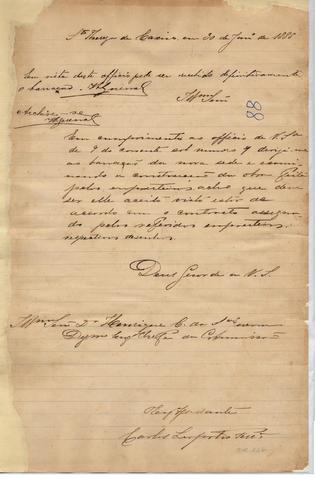 Sta Thereza de Caxias, em 30 de Junº de 1888
Em vista deste officio pode ser recebido definitivamente
o barracão.
Archive-se
Illmo Snr
88
Em cumprimento ao officio de V. Sa
de 9 do corrente sob numero 9 dirigi-me
ao barracão da nova sede e exami-
nando a construcção da obra feita
pelos empreiteiros achei que deve
ser elle aceito visto estar de
accordo com o contracto assigna-
do pelos referidos empreiteiros,
respectivos desenhos.
Deus Guarde a V. S.
Illmo Snr Dr Henrique C. da
Digmo Engº Chefe da Commissão
Engº Ajudante
Carlos